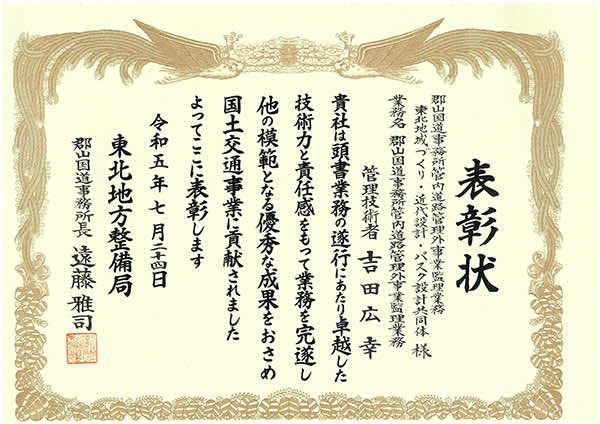 表彰状
郡山国道事務所管内道路管理外事業監理業務
東北地域づくり・近代設計・パスク設計共同体 様
業務名 郡山国道事務所管内道路管理外事業監理業務
管理技術者 吉田広幸
貴社は頭書業務の遂行にあたり卓越した
技術力と責任感をもって業務を完遂し
他の模範となる優秀な成果をおさめ
国土交通事業に貢献されました
よってここに表彰します
令和五年七月二十四日
東北地方整備局
郡山国道事務所長 遠藤雅司